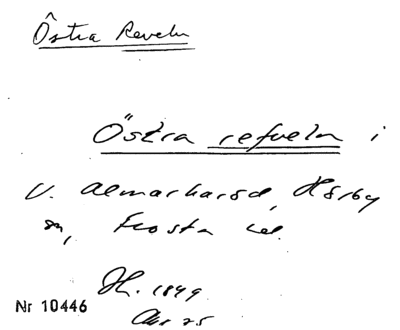 Östra Reveln
Östra refveln i
V. Almarharad, Hörby
sn, Frosta hd.
H. 1849
Nr 10446